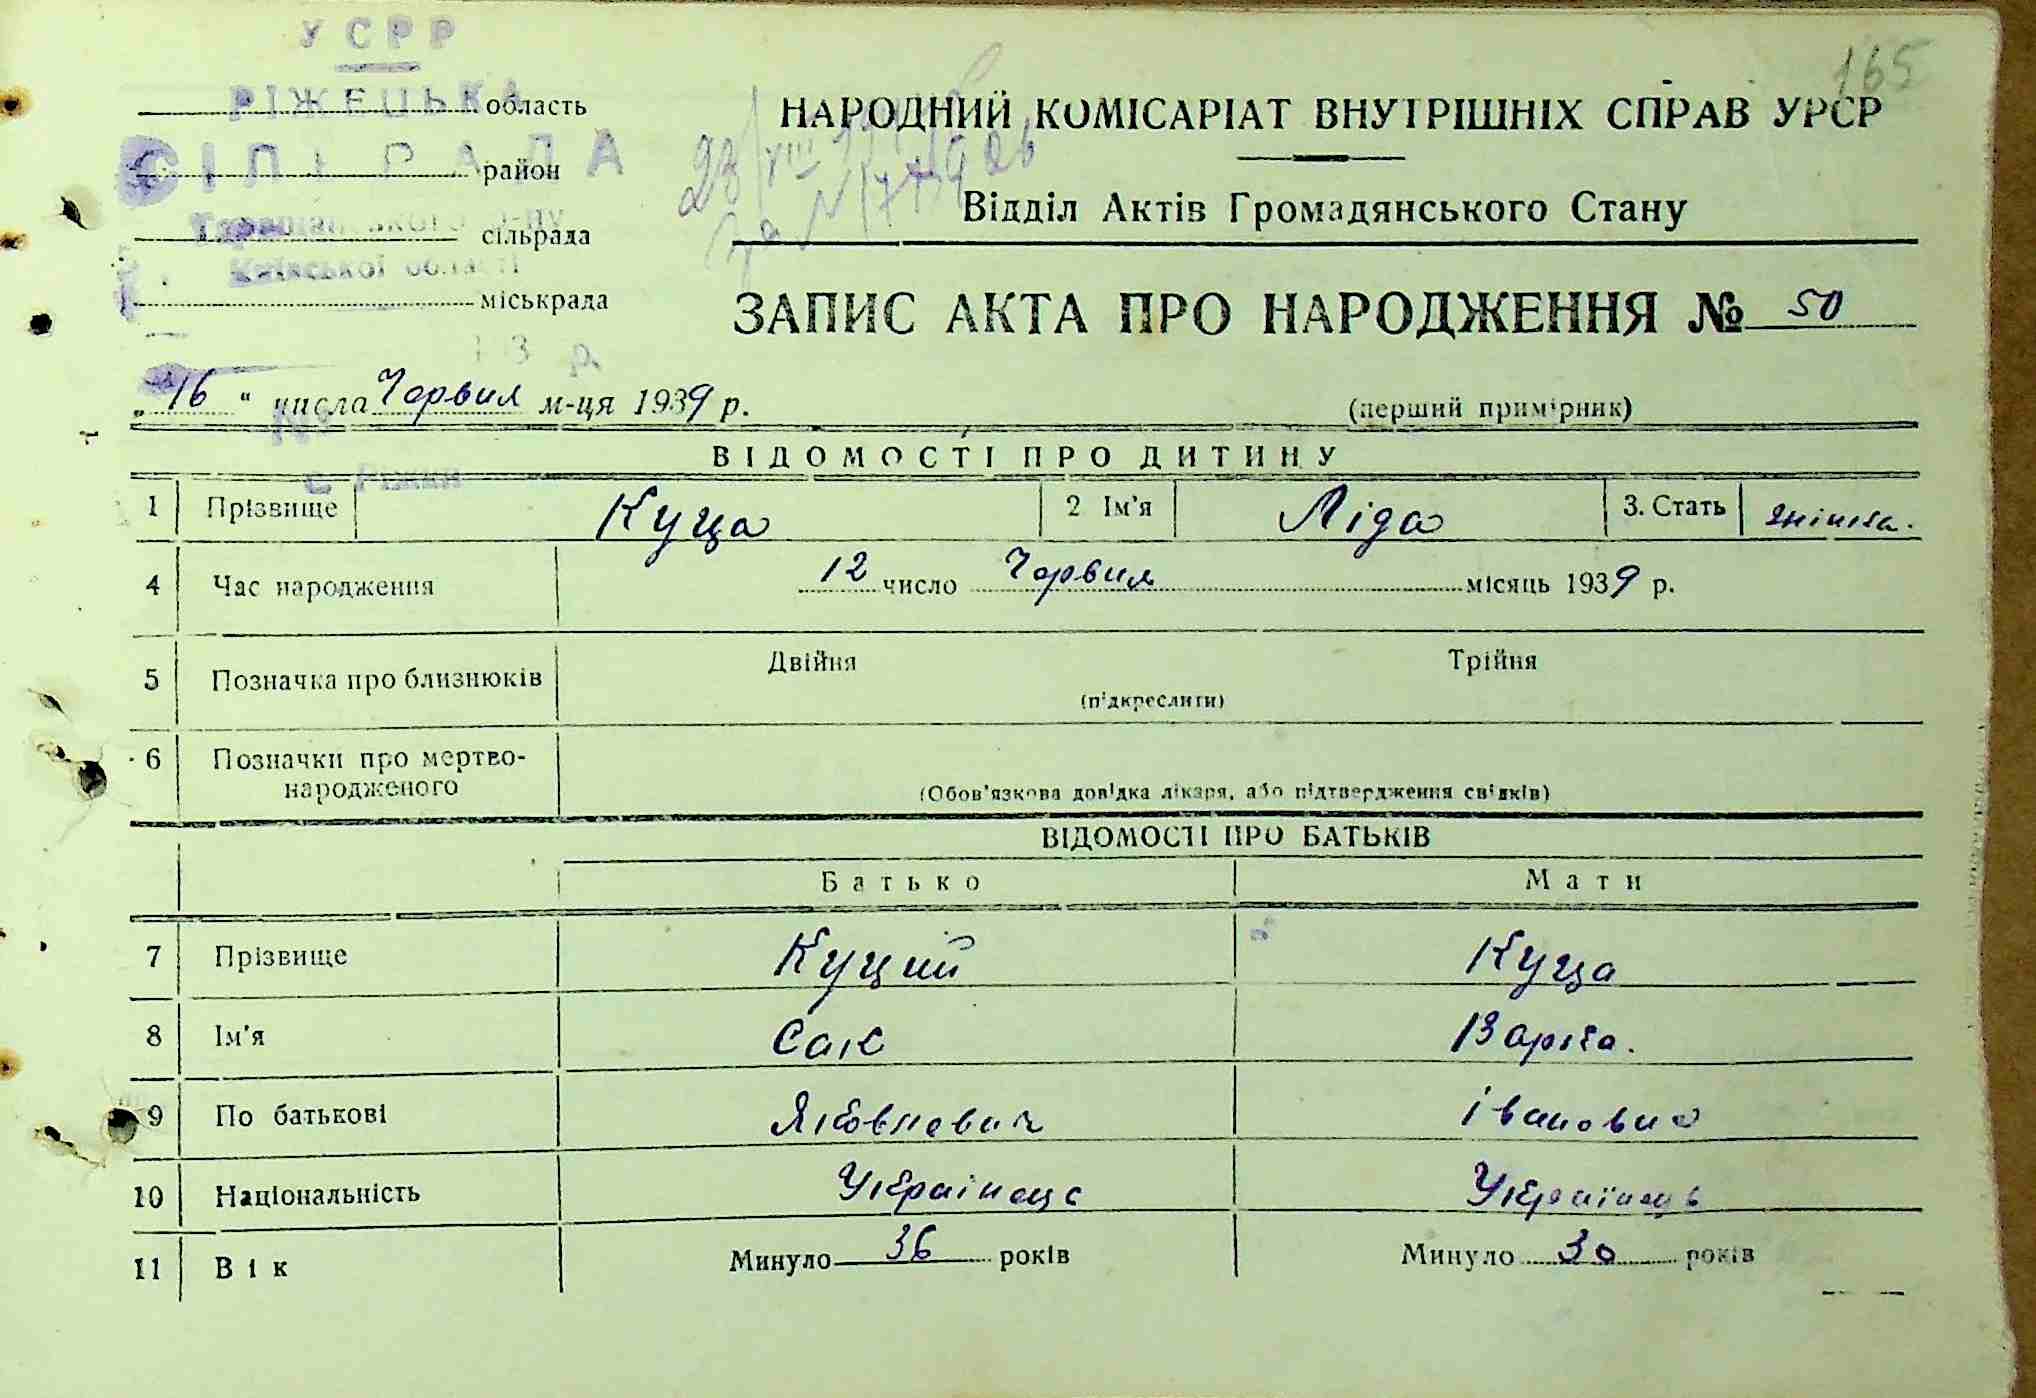 165
УСРР
РІЖЕЦЬКА область
СІЛЬРАДА район
Таращанського р-ну сільрада
Київської області міськрада
с. Ріжки
НАРОДНИЙ КОМІСАРІАТ ВНУТРІШНІХ СПРАВ УРСР
Відділ Актів Громадянського Стану
ЗАПИС АКТА ПРО НАРОДЖЕННЯ № 50
„16“ числа Червня м-ця 1939 р. (перший примірник)
ВІДОМОСТІ ПРО ДИТИНУ
1 Прізвище Куца 2 Ім'я Ліда 3. Стать жіноча.
4 Час народження 12 число Червня місяць 1939 р.
5 Позначка про близнюків Двійня Трійня
(підкреслити)
6 Позначки про мертво-
народженого
(Обов'язкова довідка лікаря, або підтвердження свідків)
ВІДОМОСТІ ПРО БАТЬКІВ
Батько Мати
7 Прізвище Куций Куца
8 Ім'я Сак Варка.
9 По батькові Яковлевич Івановна
10 Національність Українець Українець
11 Вік Минуло 36 років Минуло 30 років